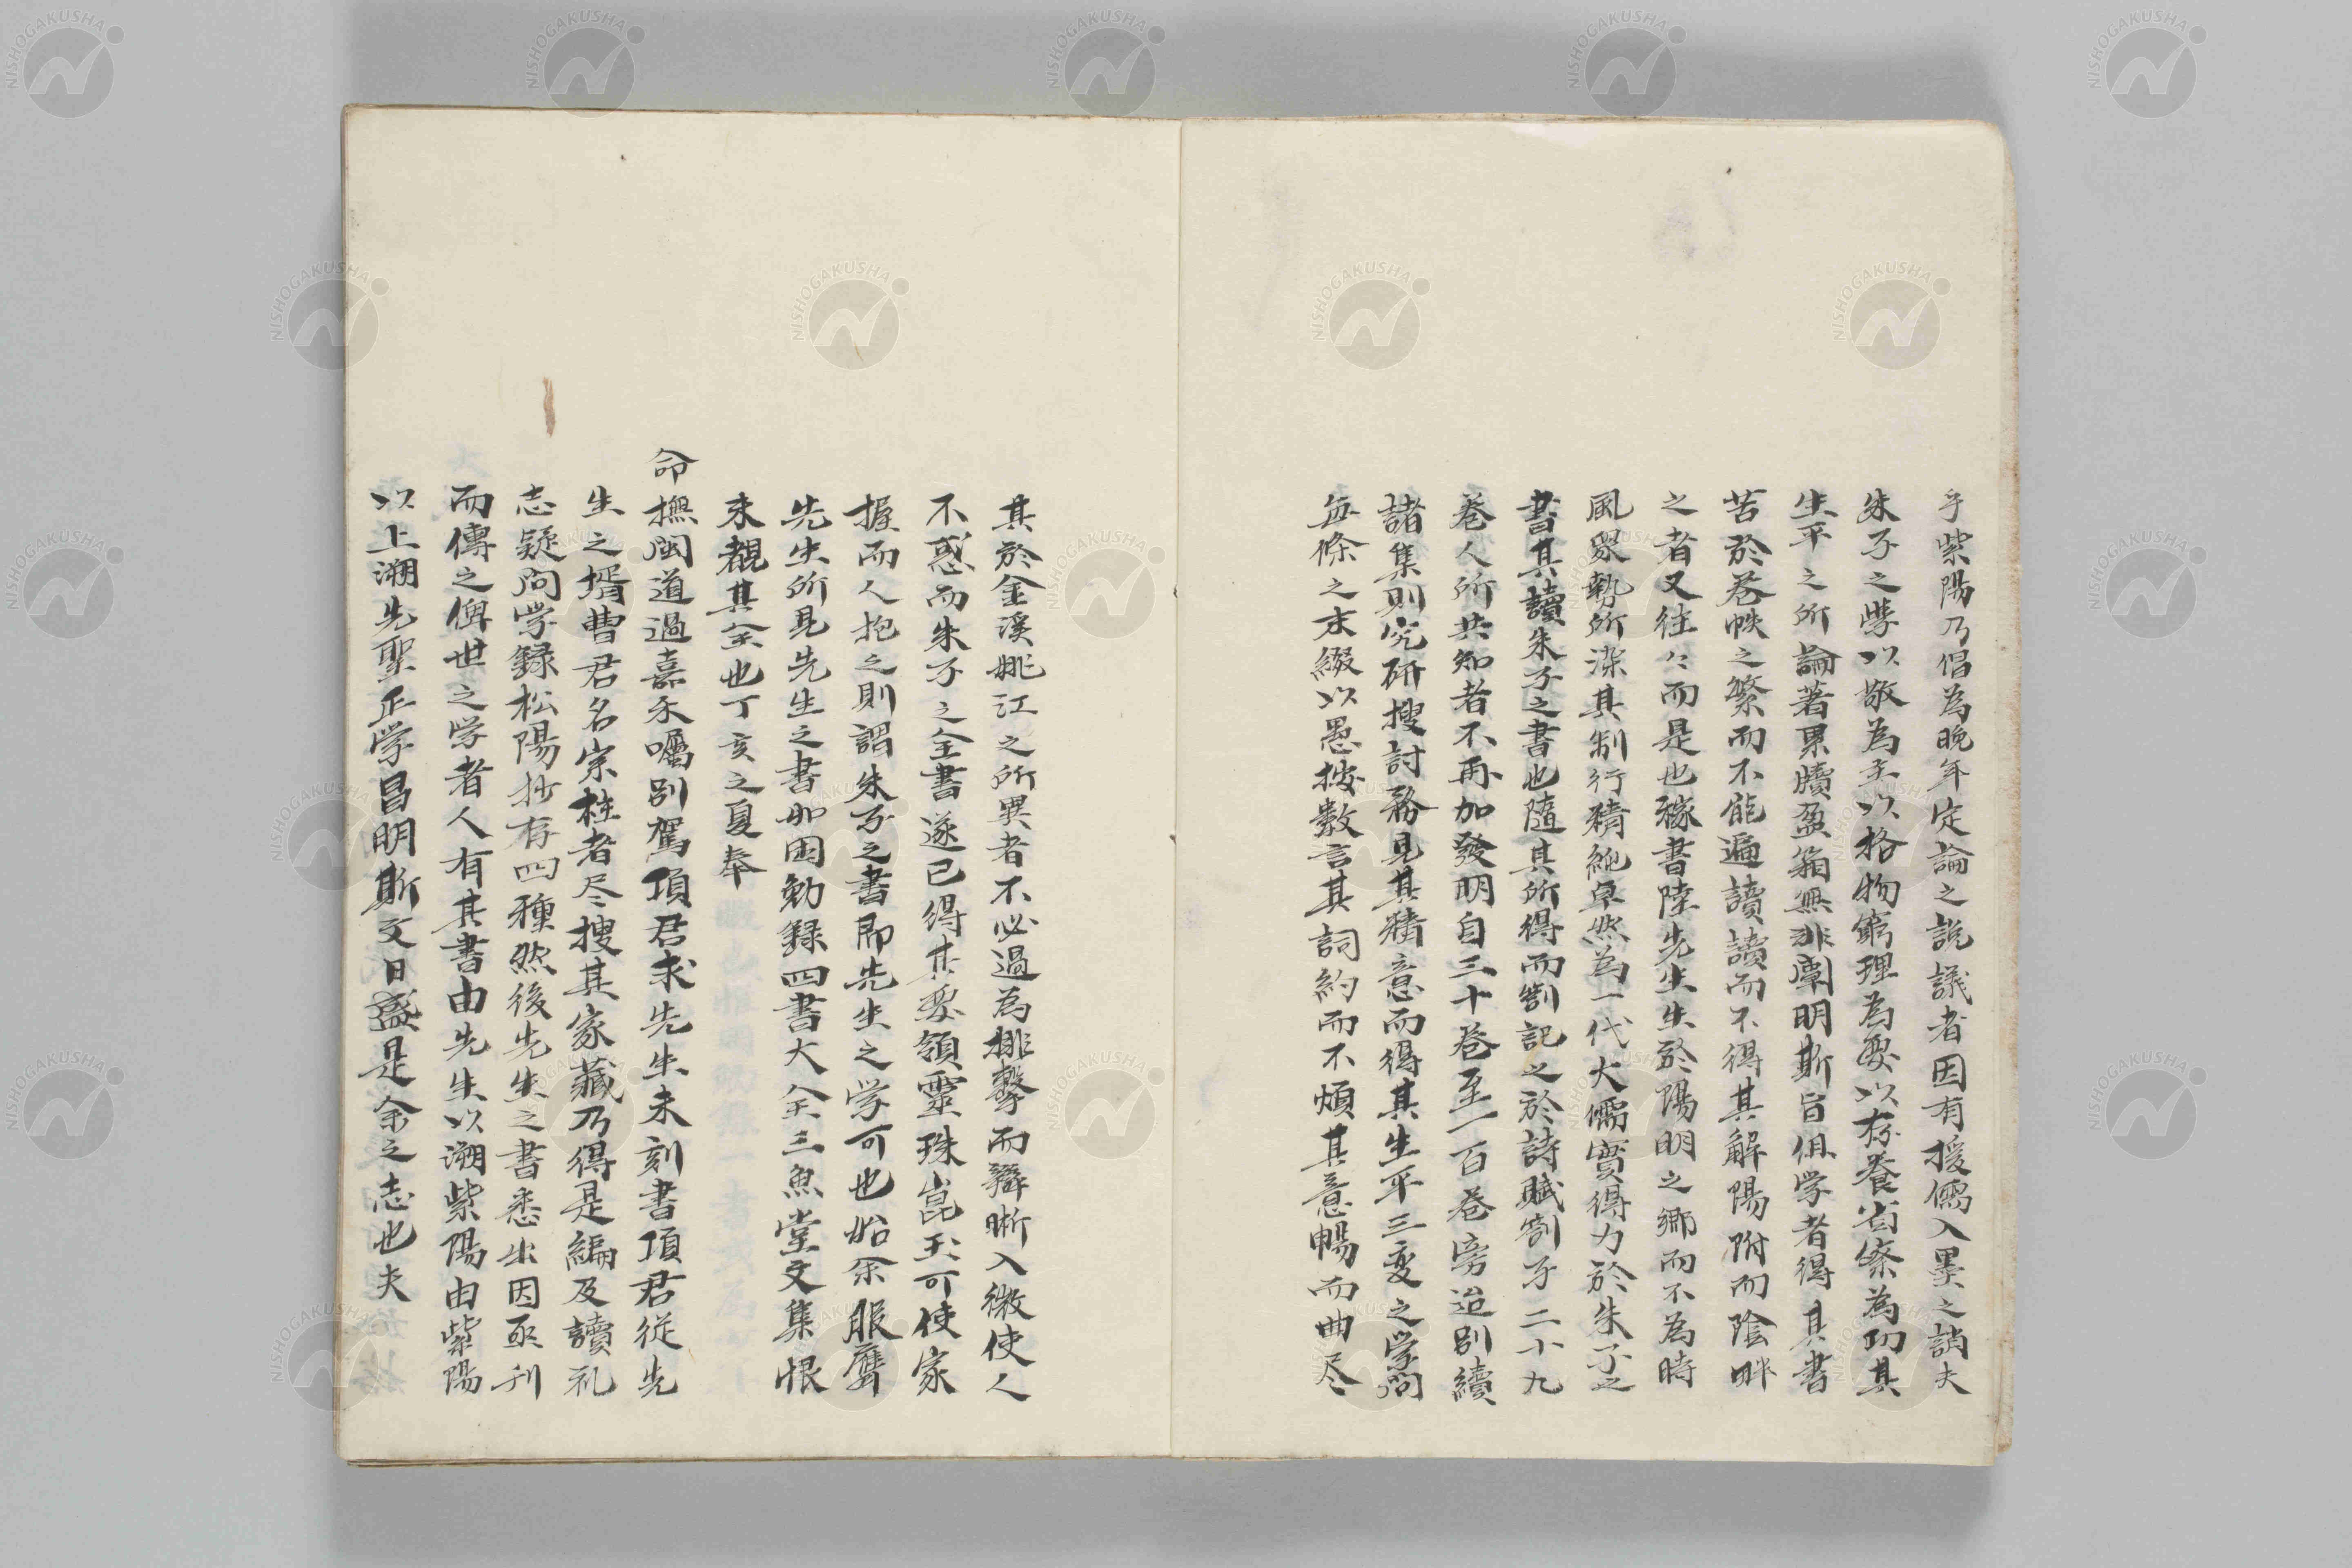 乎紫陽乃倡為晚年定論之說議者因有援儒入墨之誚夫
朱子之學以敬為主以格物窮理為要以存養省察為功其
生平之所論著累牘盈箱無非闡明斯旨俱学者得其書
苦於卷帙之繁而不能遍讀讀而不得其解陽附而陰畔
之者又往々而是也稼書陸先生生於陽明之鄉而不為時
風眾勢所染其制行精純卓然為一代大儒實得力於朱子之
書其讀朱子之書也隨其所得而劄記之於詩賦劄子二十九
卷人所共知者不再加發明自三十卷至一百卷旁迨別續
諸集則究研搜討務見其精意而得其生平三变之学問
每條之末綴以愚按數言其詞約而不煩其意暢而曲尽
其於金溪姚江之所異者不必過為排擊而辯晰入微使人
不惑而朱子之全書遂已得其要領靈珠崑玉可使家
握而人抱之則謂朱子之書即先生之学可也始余服膺
先生所見先生之書如困勉録四書大全三魚堂文集恨
未覩其全也丁亥之夏奉
命撫閩道過嘉禾囑別駕項君求先生未刻書項君從先
生之壻曹君名宗柱者尽搜其家藏乃得是編及讀礼
志疑問学録松陽抄存四種然後先生之書悉出因亟刊
而傳之俾世之学者人有其書由先生以溯紫陽由紫陽
以上溯先聖正学昌明斯文日盛是余之志也夫
NISHOGAKUSHA